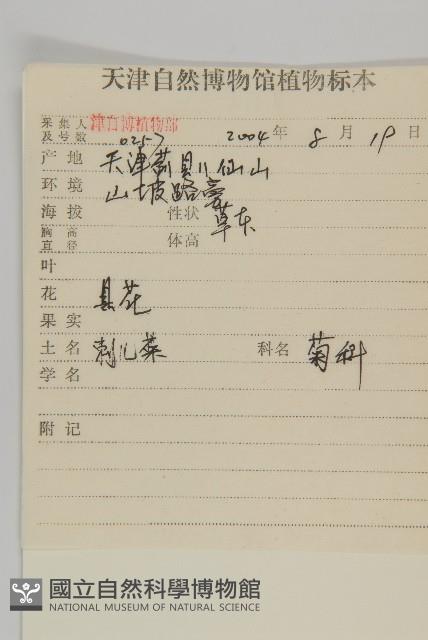 天津自然博物馆植物标本
采集人及号数 津自博植物部 0257 2004年 8月 19日
产地 天津蓟县八仙山
环境 山坡路旁
海拔 性状 草本
胸高直径 体高
叶
花 具花
果实
土名 刺儿菜 科名 菊科
学名
附记
國立自然科學博物館
NATIONAL MUSEUM OF NATURAL SCIENCE